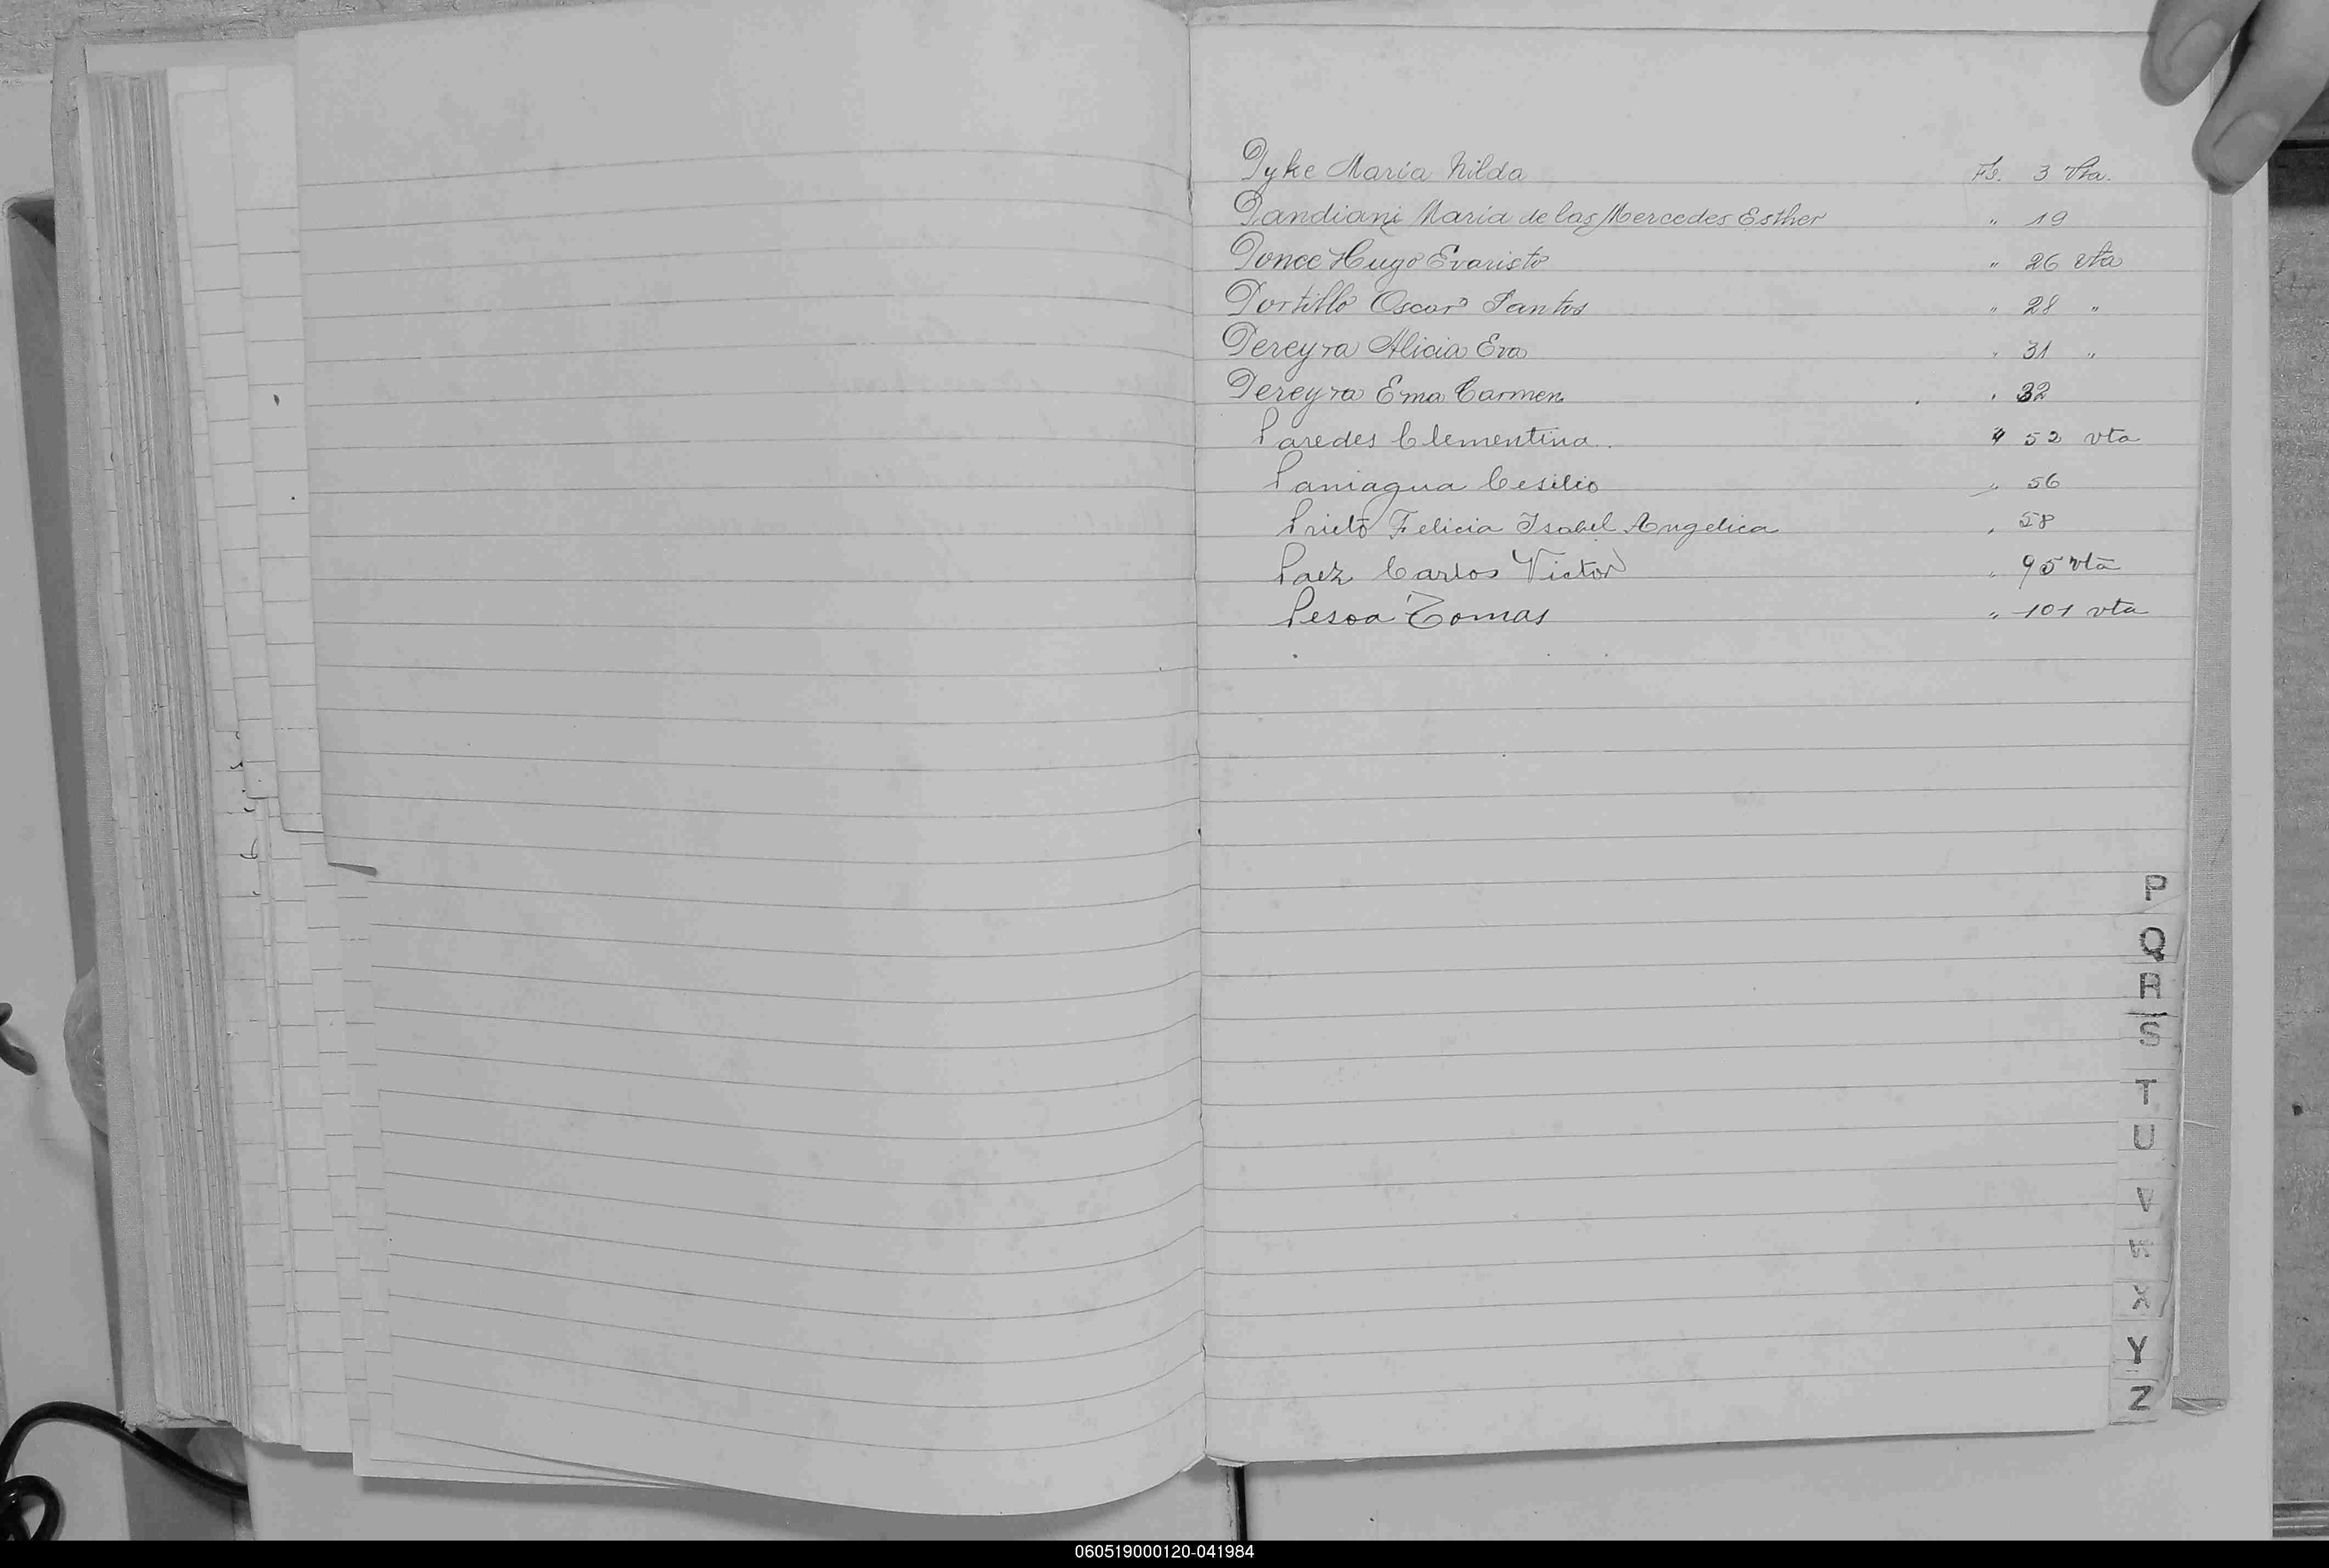 Pyke María Nilda Fs. 3 Vta.
Pandiani María de las Mercedes Esther " 19
Ponce Hugo Evaristo " 26 vta
Portillo Oscar Santos " 28 "
Pereyra Alicia Eva " 31 "
Pereyra Ema Carmen " 32
Paredes Clementina. " 52 vta
Paniagua Cesilio " 56
Prieto Felicia Isabel Angelica " 58
Paez Carlos Victor " 95 vta
Pesoa Tomas " 101 vta
P
Q
R
S
T
U
V
W
X
Y
Z
060519000120-041984